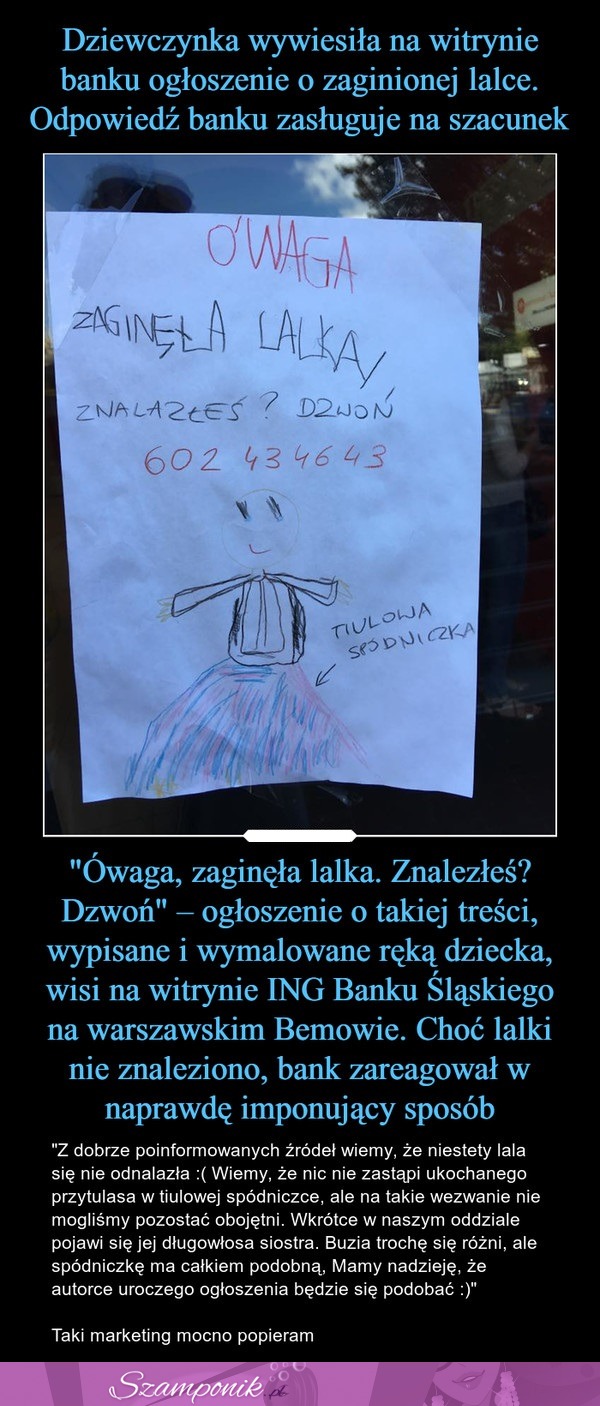 Dziewczynka wywiesiła na witrynie
banku ogłoszenie o zaginionej lalce.
Odpowiedź banku zasługuje na szacunek
ÓWAGA
ZAGINĘŁA LALKA,
ZNALAZŁEŚ? DZWOŃ
602 43 46 43
TIULOWA
SPÓDNICZKA
"Ówaga, zaginęła lalka. Znalezłeś?
Dzwoń" – ogłoszenie o takiej treści,
wypisane i wymalowane ręką dziecka,
wisi na witrynie ING Banku Śląskiego
na warszawskim Bemowie. Choć lalki
nie znaleziono, bank zareagował w
naprawdę imponujący sposób
"Z dobrze poinformowanych źródeł wiemy, że niestety lala
się nie odnalazła :( Wiemy, że nic nie zastąpi ukochanego
przytulasa w tiulowej spódniczce, ale na takie wezwanie nie
mogliśmy pozostać obojętni. Wkrótce w naszym oddziale
pojawi się jej długowłosa siostra. Buzia trochę się różni, ale
spódniczkę ma całkiem podobną, Mamy nadzieję, że
autorce uroczego ogłoszenia będzie się podobać :)"
Taki marketing mocno popieram
Szamponik.pl